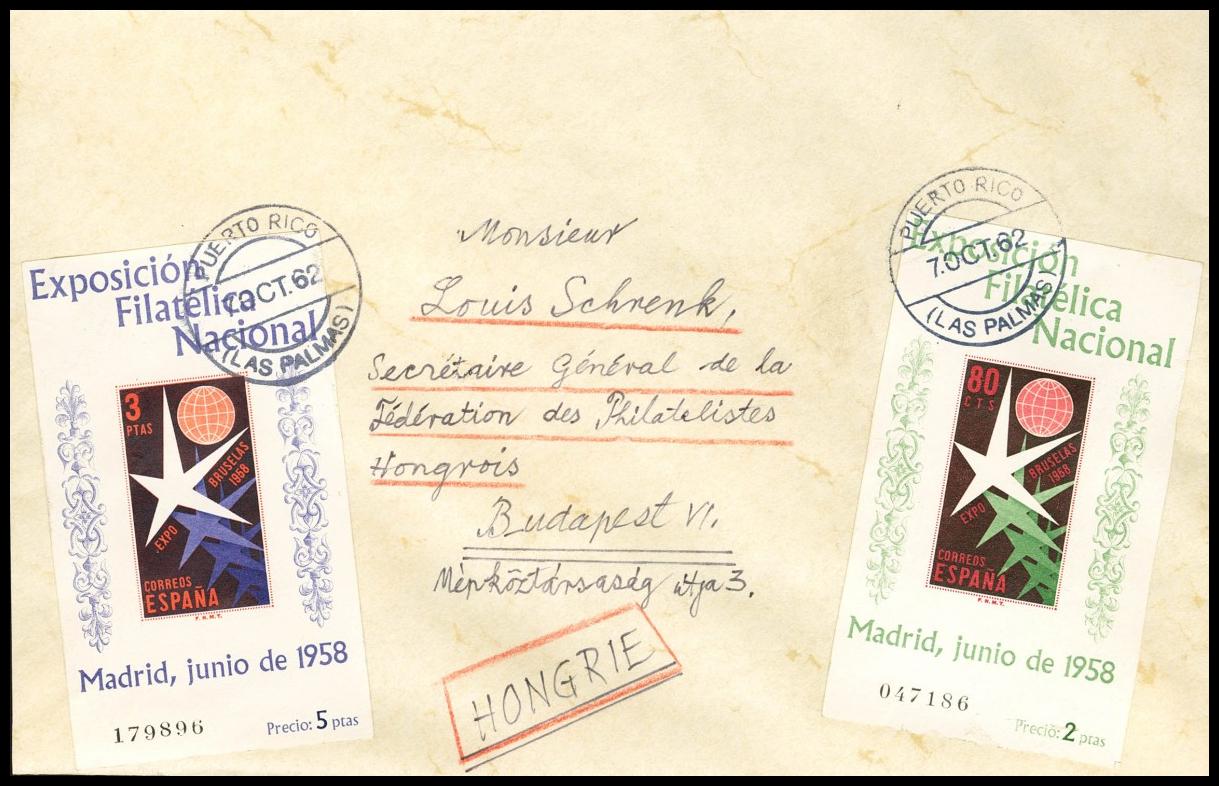 PUERTO RICO
7.OCT.62
(LAS PALMAS)
Exposición
Filatélica
Nacional
3
PTAS
BRUSELAS
1958
EXPO
CORREOS
ESPAÑA
F.N.M.T.
Madrid, junio de 1958
179896
Precio: 5 ptas
Monsieur
Louis Schrenk,
Secrétaire Général de la
Fédération des Philatelistes
Hongrois
Budapest VI.
Népköztársaság utja 3.
HONGRIE
PUERTO RICO
7.OCT.62
(LAS PALMAS)
Exposición
Filatélica
Nacional
80
CTS
BRUSELAS
1958
EXPO
CORREOS
ESPAÑA
F.N.M.T.
Madrid, junio de 1958
047186
Precio: 2 ptas